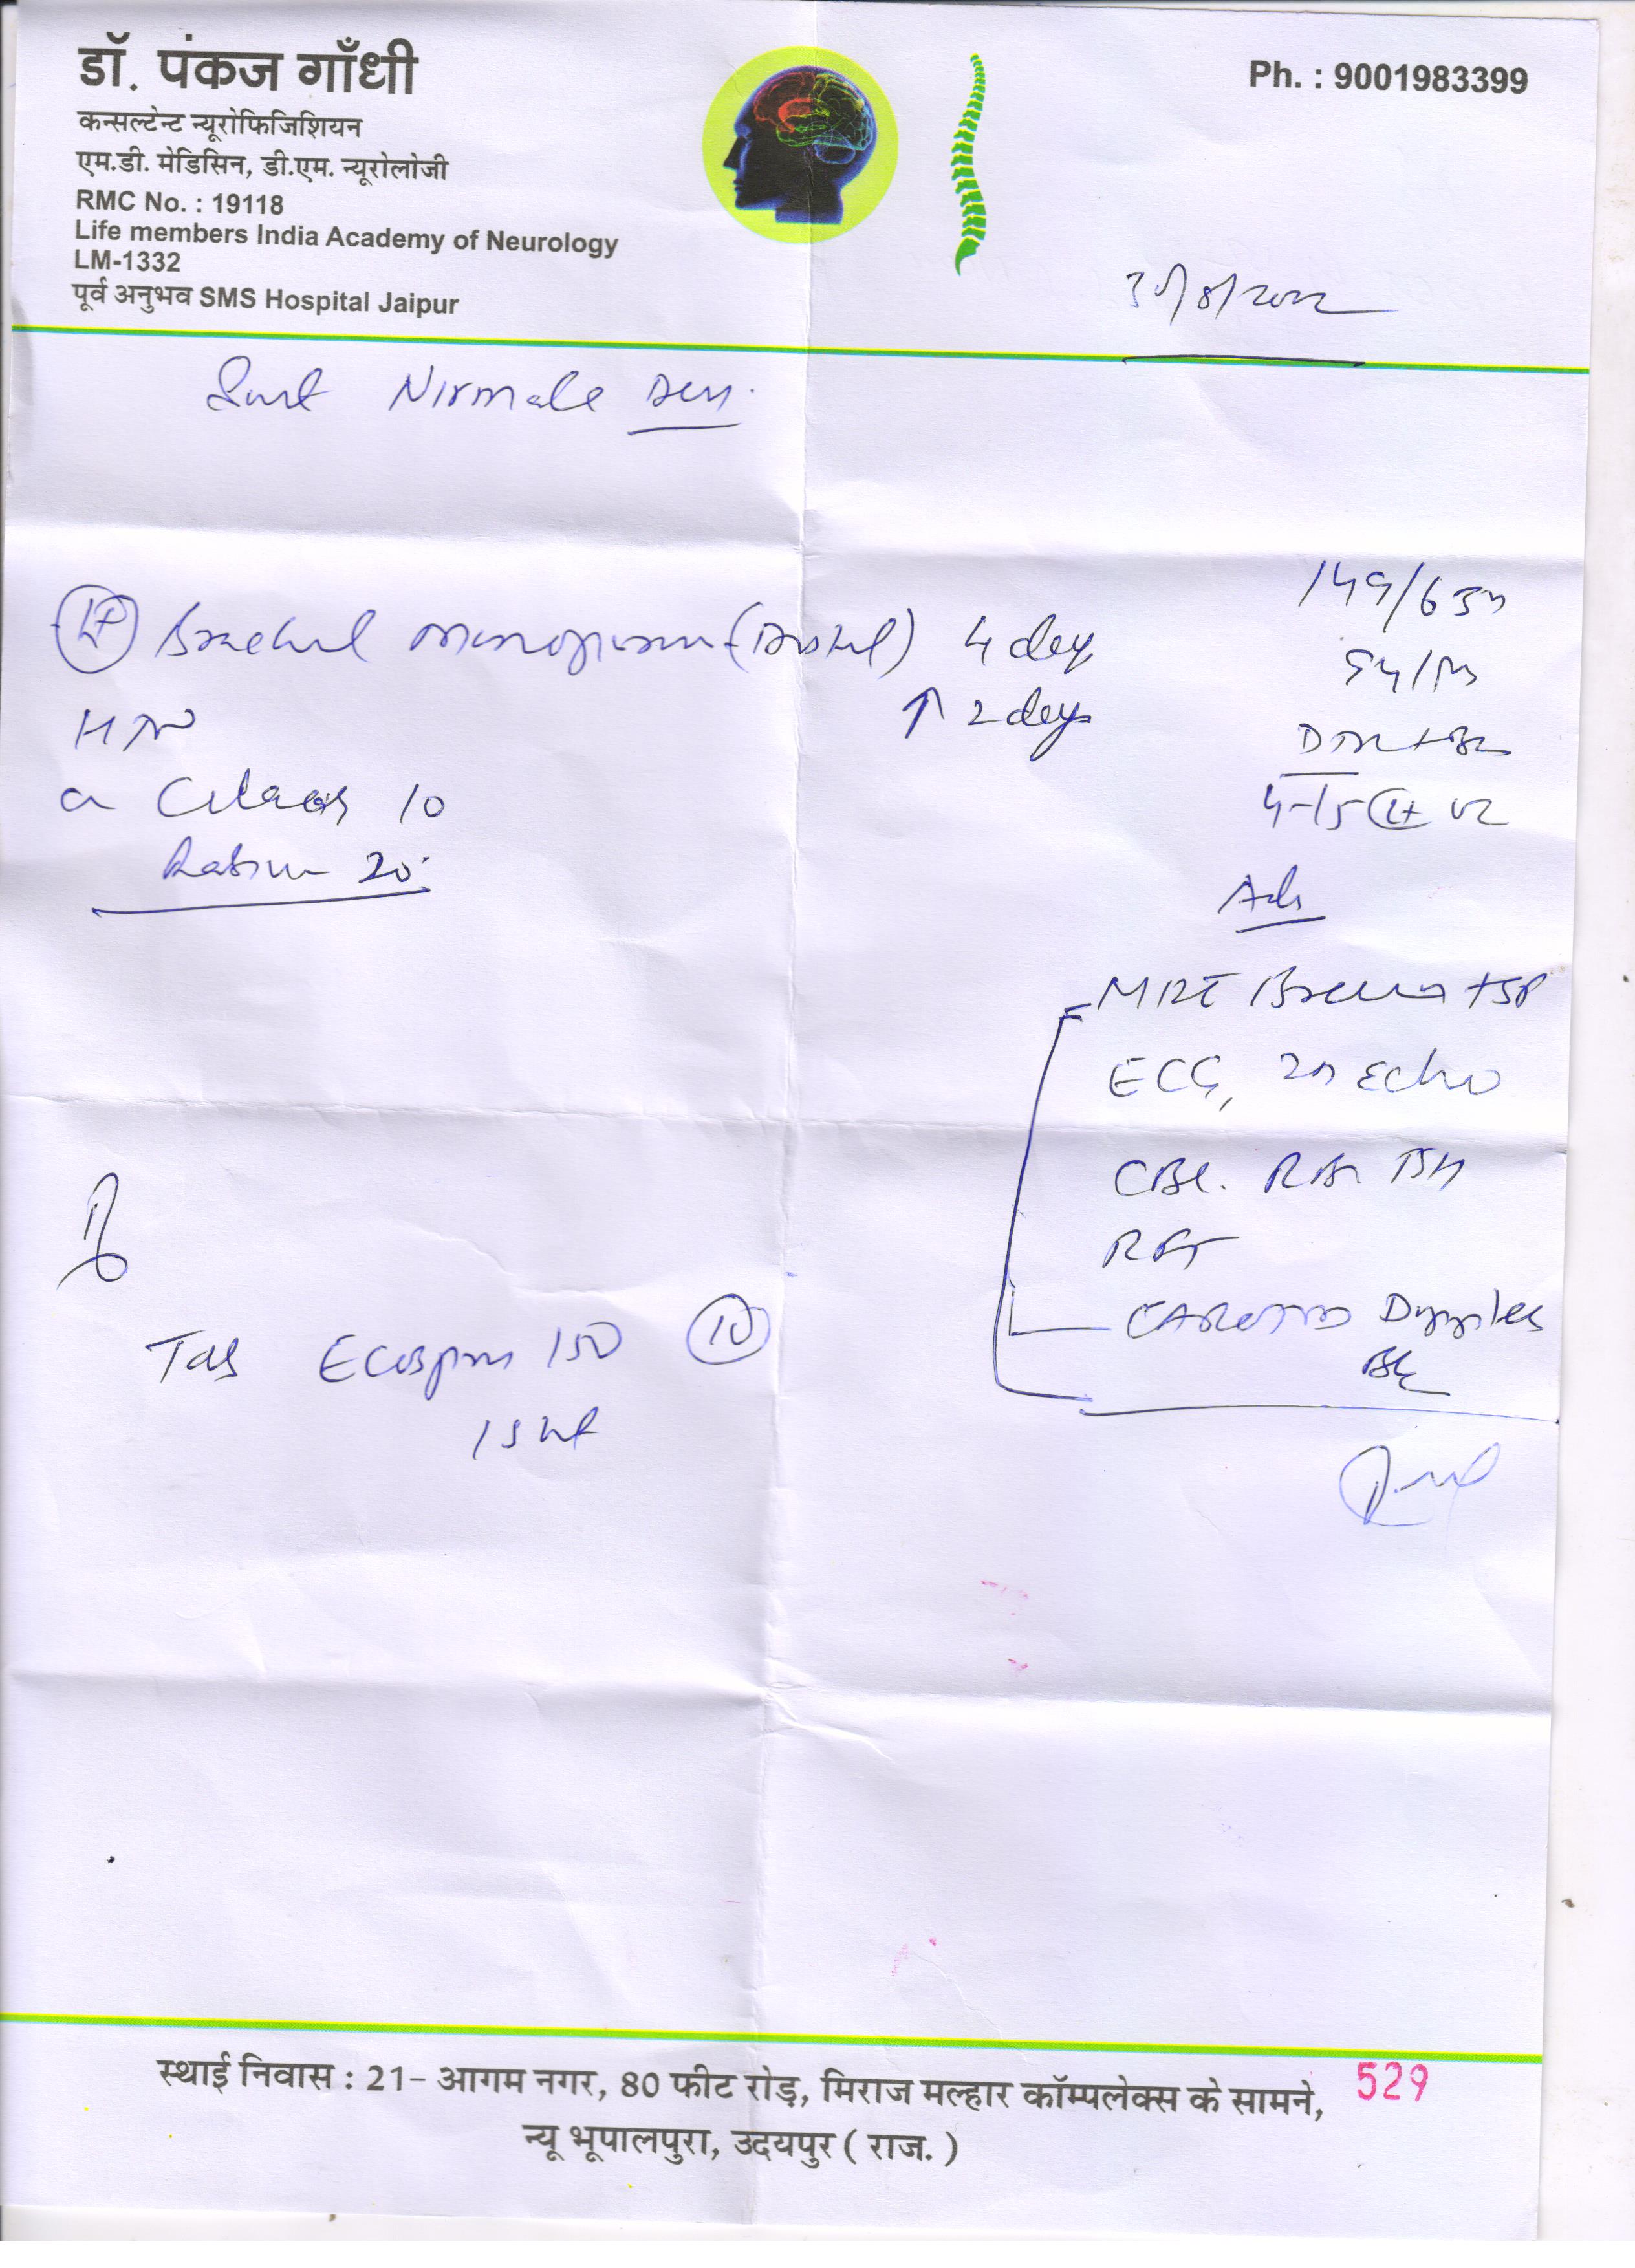 डॉ. पंकज गाँधी
कन्सल्टेन्ट न्यूरोफिजिशियन
एम.डी. मेडिसिन, डी.एम. न्यूरोलोजी
RMC No. : 19118
Life members India Academy of Neurology
LM-1332
पूर्व अनुभव SMS Hospital Jaipur
Ph. : 9001983399
Smt Nirmala Devi
Lt Brachial monoparesis (Distal) 4 days
↑ 2 days
HTN
Cilacar 10
20
149/63
94/m
4-/5 Lt UL
Adv
MRI Brain
ECG, 2D Echo
CBC. RBS
RFT
CAROTID Doppler
B/L
Tab Ecosprin 150 10
1 stat
स्थाई निवास : 21- आगम नगर, 80 फीट रोड़, मिराज मल्हार कॉम्पलेक्स के सामने,
529
न्यू भूपालपुरा, उदयपुर ( राज. )